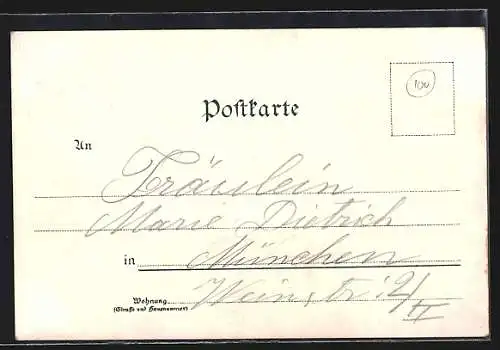 Postkarte
100
An
Fräulein
Marie Dietrich
in München
Wohnung Weinstr. 9/II
(Straße und Hausnummer)